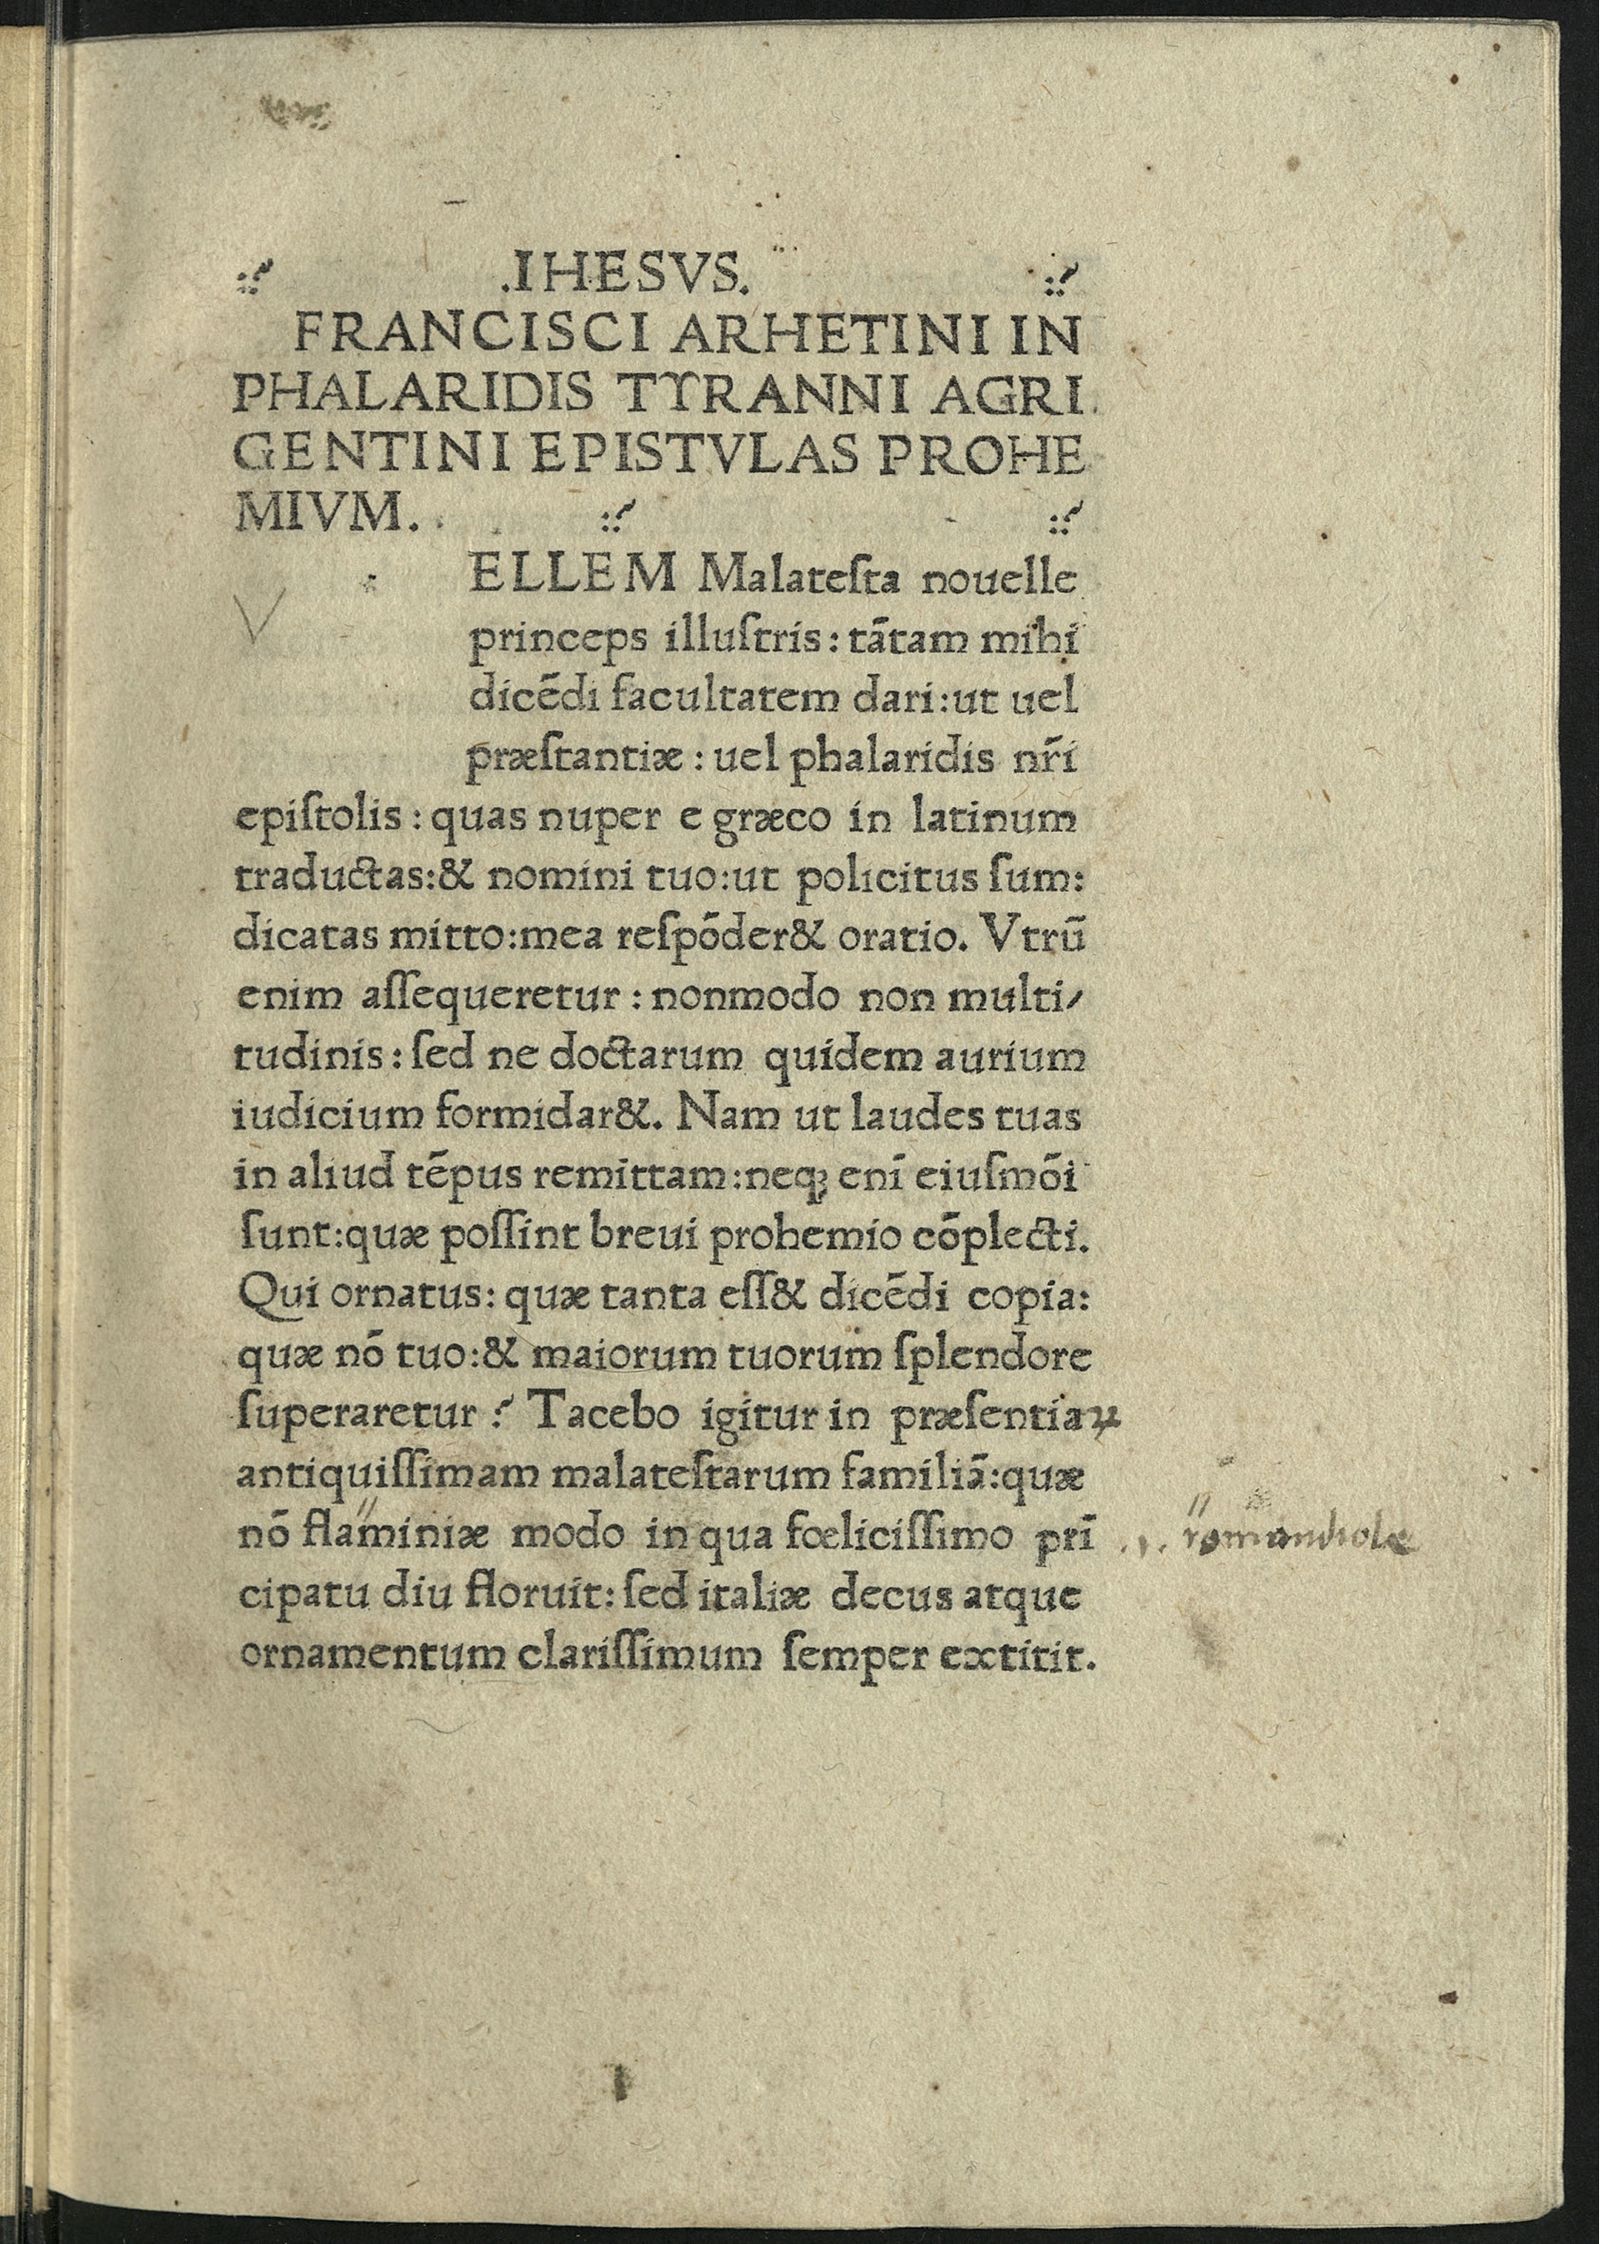 .IHESVS.
FRANCISCI ARHETINI IN
PHALARIDIS TYRANNI AGRI
GENTINI EPISTVLAS PROHE
MIVM.
V
ELLEM Malateſta nouelle
princeps illuſtris: tātam mihi
dicēdi facultatem dari:ut uel
præſtantiæ: uel phalaridis nr̄i
epiſtolis: quas nuper e græco in latinum
traductas:& nomini tuo:ut policitus ſum:
dicatas mitto:mea reſpōder& oratio. Vtrū
enim aſſequeretur: nonmodo non multi/
tudinis: ſed ne doctarum quidem aurium
iudicium formidar&. Nam ut laudes tuas
in aliud tēpus remittam:neqꝫ enī eiuſmōi
ſunt:quæ poſſint breui prohemio cōplecti.
Qui ornatus: quæ tanta eſſ& dicēdi copia:
quæ nō tuo:& maiorum tuorum ſplendore
ſuperaretur? Tacebo igitur in præſentia
antiquiſſimam malateſtarum familiā:quæ
nō flaminiæ modo in qua fœliciſſimo prī
romandiole
cipatu diu floruit: ſed italiæ decus atque
ornamentum clariſſimum ſemper extitit.